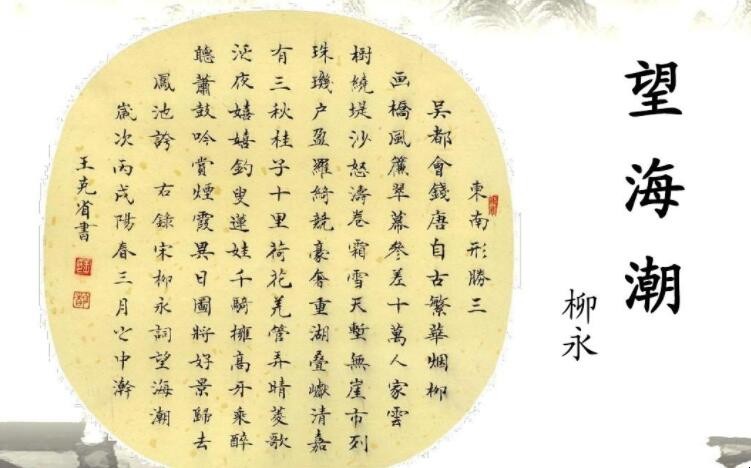 望海潮
柳永
東南形勝三
吴都會錢唐自古繁華烟柳
画橋風簾翠幕參差十萬人家雲
樹繞堤沙怒濤卷霜雪天塹無崖市列
珠璣户盈羅綺競豪奢重湖疊巘清嘉
有三秋桂子十里荷花羌管弄晴菱歌
泛夜嬉嬉釣叟蓮娃千騎擁高牙乘醉
聽蕭鼓吟賞煙霞異日圖將好景歸去
鳳池誇 右錄宋柳永詞望海潮
歲次丙戌陽春三月之中澣
王克省書